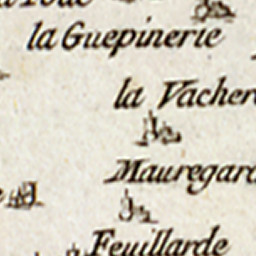 la Guepinerie
la Vacher
Mauregard
Feuillarde